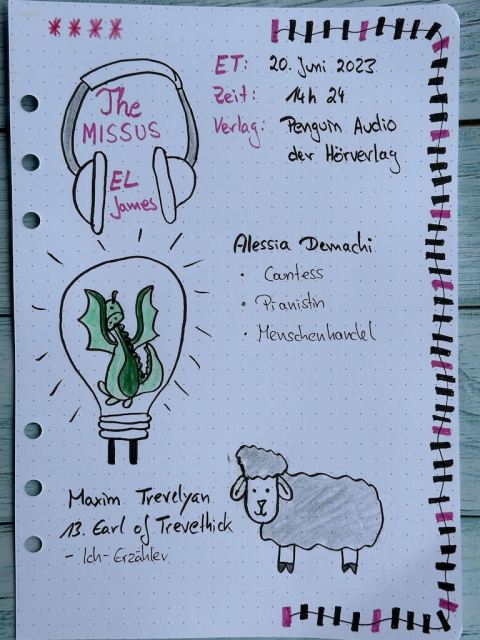 The
MISSUS
EL
James
ET: 20. Juni 2023
Zeit: 14h 24
Verlag: Penguin Audio
der Hörverlag
Alessia Demachi
· Countess
· Pianistin
· Menschenhandel
Maxim Trevelyan
13. Earl of Trevethick
- Ich-Erzähler